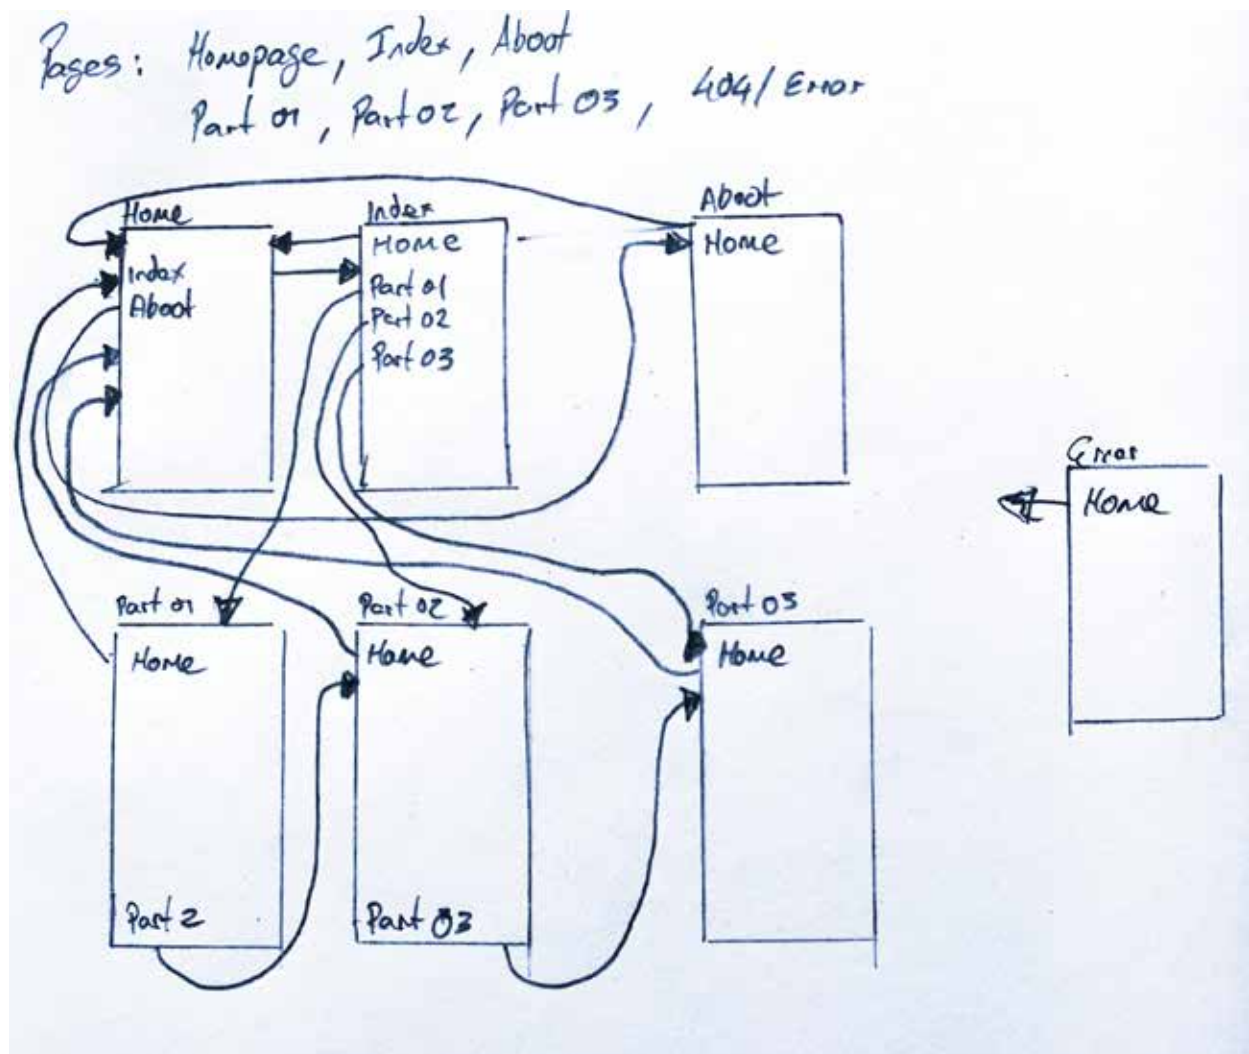 Pages: Homepage, Index, About
Part 01, Part 02, Part 03, 404/Error
Home
Index
About
Index
Home
Part 01
Part 02
Part 03
About
Home
Error
Home
Part 01
Home
Part 2
Part 02
Home
Part 03
Part 03
Home